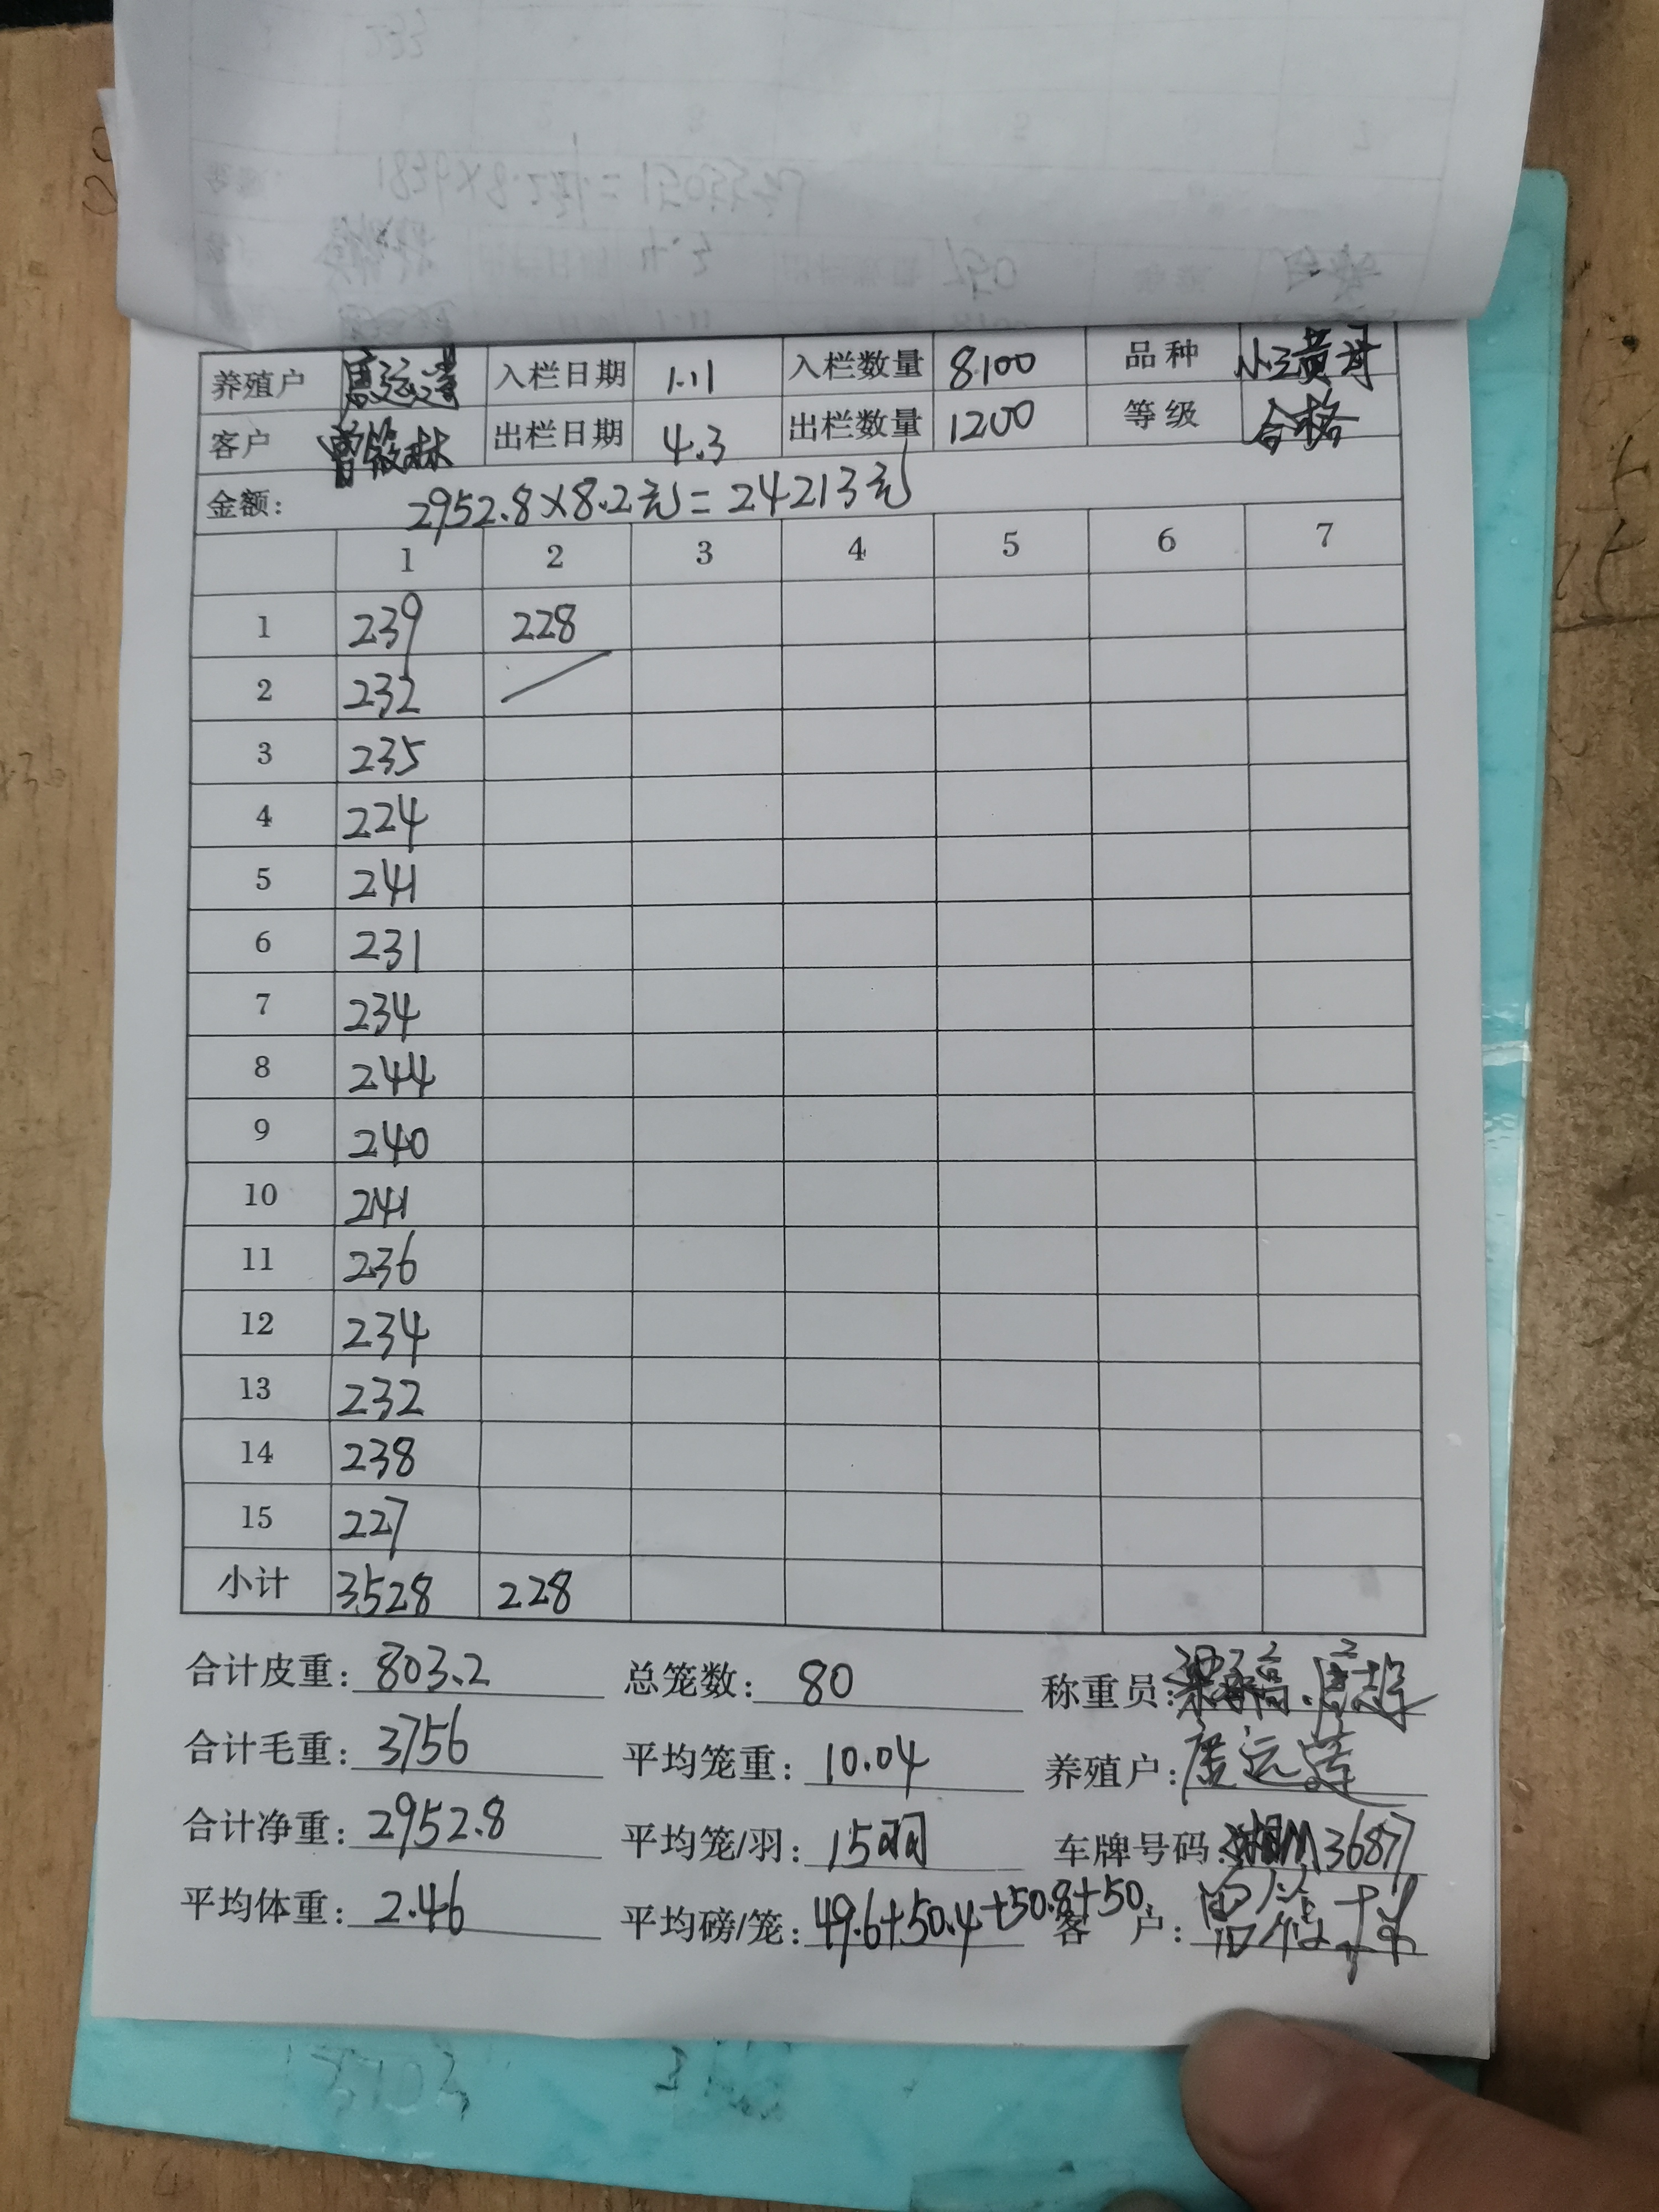 养殖户 唐运莲 入栏日期 1.11 入栏数量 8100 品种 小三黄母
客户 曾俊林 出栏日期 4.3 出栏数量 1200 等级 合格
金额: 2952.8×8.2元=24213元
1 2 3 4 5 6 7
1 239 228
2 232
3 235
4 224
5 241
6 231
7 234
8 244
9 240
10 241
11 236
12 234
13 232
14 238
15 227
小计 3528 228
合计皮重: 803.2 总笼数: 80 称重员:
合计毛重: 3756 平均笼重: 10.04 养殖户: 唐运莲
合计净重: 2952.8 平均笼/羽: 15羽 车牌号码: 湘M36877
平均体重: 2.46 平均磅/笼: 49.6+50.4+50.8+50. 客 户: